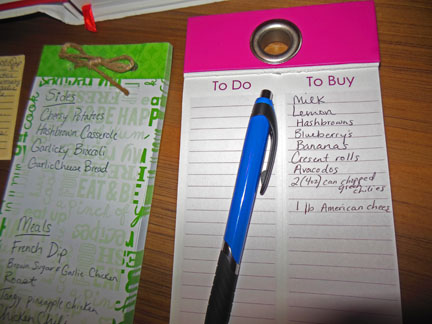 Sides
Cheesy Potatoes
Hashbrown Casserole
Garlicky Broccoli
Garlic Cheese Bread
Meals
French Dip
Brown Sugar & Garlic Chicken
Roast
Tangy pineapple chicken
Chicken Chili
To Do
To Buy
Milk
Lemon
Hashbrowns
Blueberry's
Bananas
Cresent rolls
Avocodos
2 (4oz) can chopped
green chilies
1 lb American cheez